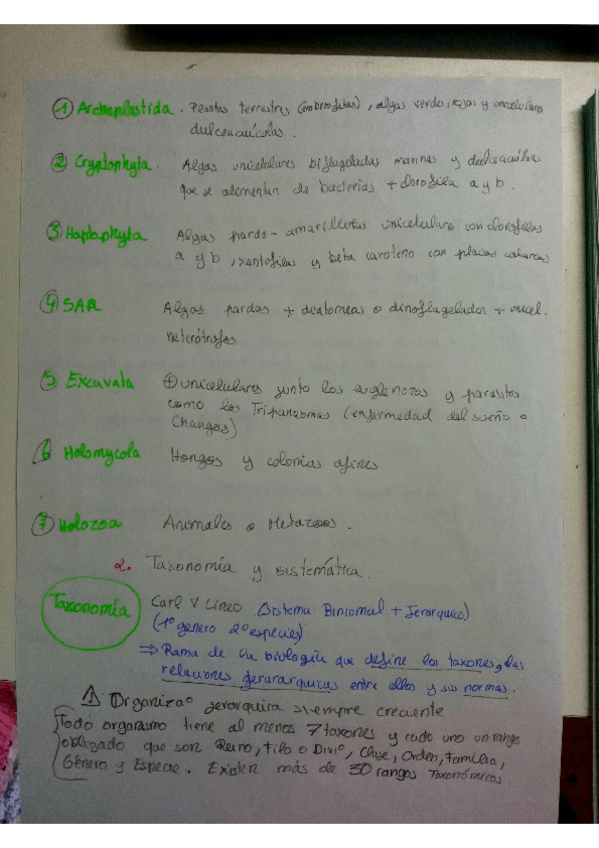 ① Archaeplastida. Plantas terrestres (embriofitas), algas verdes, rojas y unicelulares
dulceacuícolas.
② Cryptophyta. Algas unicelulares biflageladas marinas y dulceacuícolas
que se alimentan de bacterias + clorofila a y b.
③ Haptophyta Algas pardo-amarillentas unicelulares con clorofilas
a y b, xantofilas y beta caroteno con placas calcáreas
④ SAR Algas pardas + diatomeas o dinoflagelados + unicel.
heterótrofos
⑤ Excavata ⊕ unicelulares junto los euglenozos y parasitos
como los Tripanosomas (enfermedad del sueño o
Changas)
⑥ Holomycola Hongos y colonias afines
⑦ Holozoa Animales o Metazoos.
2. Taxonomía y sistemática.
Taxonomía Carl V Lineo (Sistema Binomial + Jerarquico)
(1º genero 2º especies)
⇒ Rama de la biología que define los taxones, las
relaciones jerararquicas entre ellos y sus normas.
⚠ Organizaº jerarquica siempre creciente
Todo organismo tiene al menos 7 taxones y cada uno un rango
obligado que son Reino, Filo o Divº, Clase, Orden, Familia,
Género y Especie. Existen más de 30 rangos Taxonómicos.